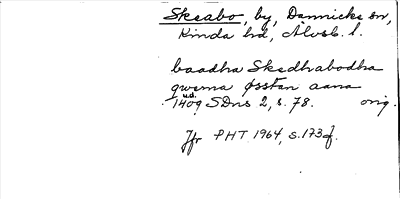 Skeabo, by, Dannicke sn,
Kinda hd, Älvsb. l.
baadha Skedhabodha
qwerna østan aana
u.d.
1409 SDns 2, s. 78. orig.
Jfr PHT 1964, s. 173 f.